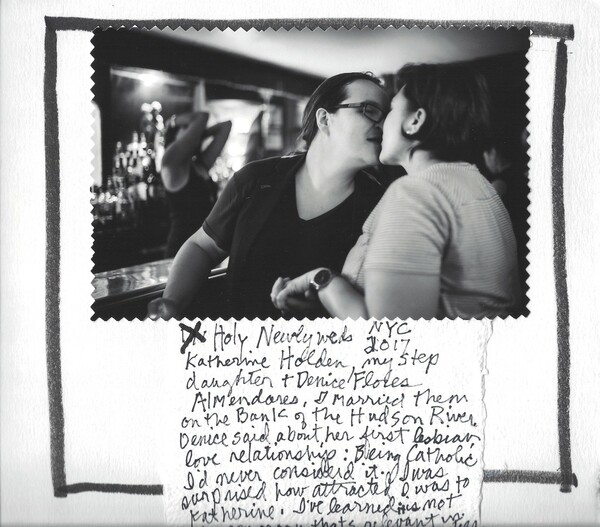 Holy Newlyweds NYC
2017
Katherine Holden, my step
daughter + Denice Flores
Almendares, I married them
on the Bank of the Hudson River.
Denice said about her first lesbian
love relationship: Being Catholic
I'd never considerd it. I was
surprised how attracted I was to
Katherine. I've learned its not
thats relevant